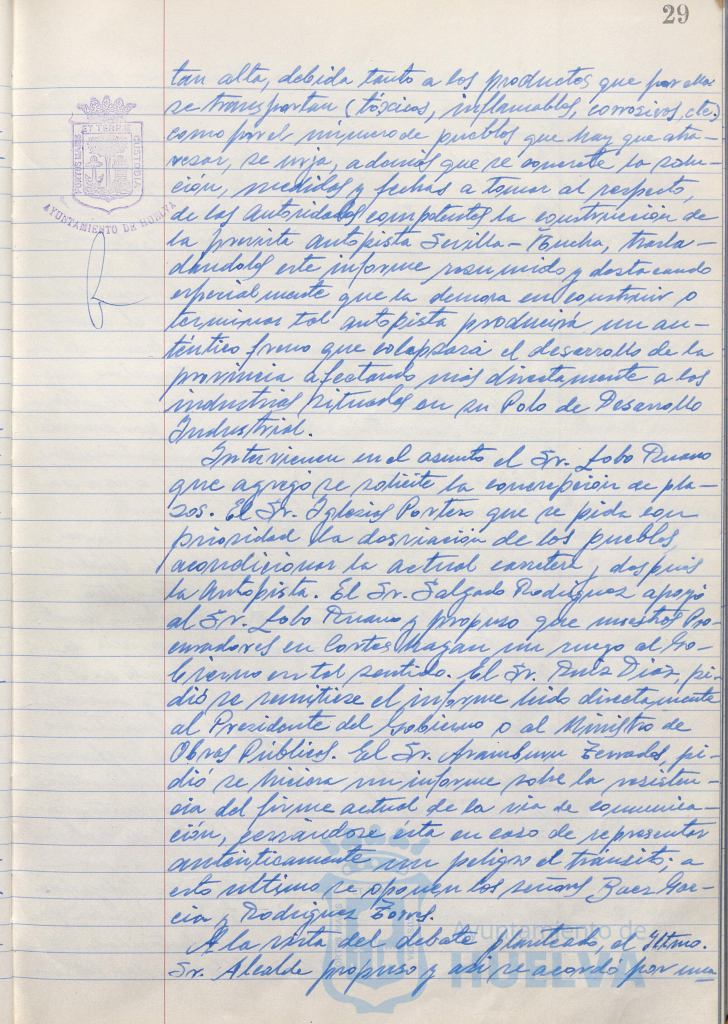 29
tan alta, debida tanto a los productos que por ella
se transportan (tóxicos, inflamables, corrosivos, etc.)
como por el número de pueblos que hay que atra-
vesar, se urja, además que se concrete la solu-
ción, medidas y fechas a tomar al respecto,
de las Autoridades competentes la construcción de
la prevista Autopista Sevilla-Huelva, trasla-
dándoles este informe resumido y destacando
especialmente que la demora en construir o
terminar tal autopista producirá un au-
téntico freno que colapsará el desarrollo de la
provincia afectando más directamente a las
industrias situadas en su Polo de Desarrollo
Industrial.
Intervienen en el asunto el Sr. Lobo Duano
que agregó se solicite la concreción de pla-
zos. El Sr. Iglesias Portero que se pida con
prioridad la desviación de los pueblos,
acondicionar la actual carretera y después
la Autopista. El Sr. Salgado Rodríguez apoyó
al Sr. Lobo y propuso que nuestros Pro-
curadores en Cortes hagan un ruego al Go-
bierno en tal sentido. El Sr. Ruiz Díaz, pi-
dió se remitiese el informe leído directamente
al Presidente del Gobierno o al Ministro de
Obras Públicas. El Sr. Aramburu Terrades, pi-
dió se hiciera un informe sobre la resisten-
cia del firme actual de la vía de comunica-
ción, cerrándose ésta en caso de representar
auténticamente un peligro el tránsito; a
esto último se oponen los señores Baez Gar-
cía y Rodríguez Torres.
A la vista del debate planteado, el Iltmo.
Sr. Alcalde propuso y así se acordó por una
AYUNTAMIENTO DE HUELVA
Ayuntamiento de
HUELVA